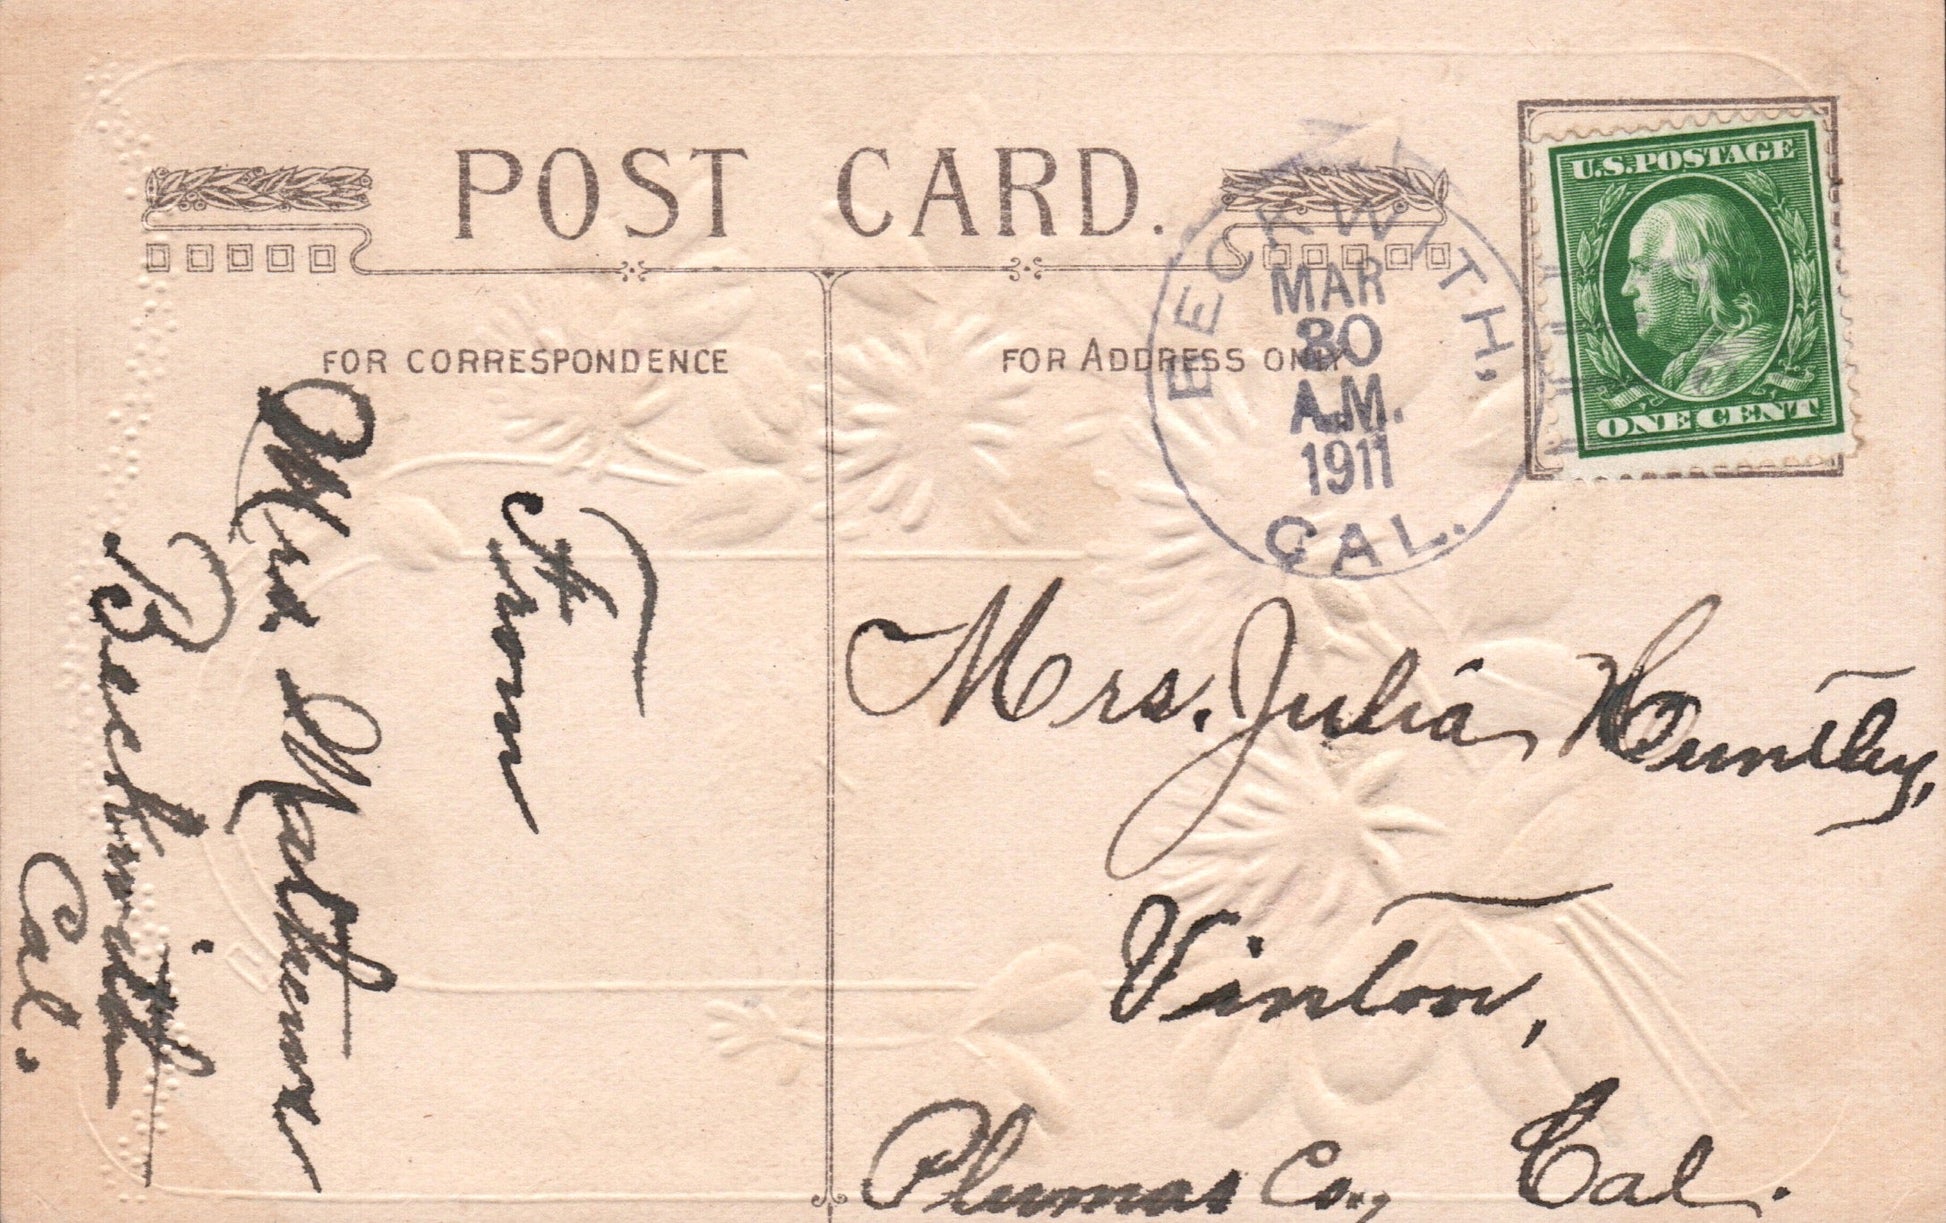 POST CARD.
FOR CORRESPONDENCE
FOR ADDRESS ONLY
BECKWITH,
MAR
30
A.M.
1911
CAL.
U.S. POSTAGE
ONE CENT
From
Mrs Mathews
Beckwith
Cal.
Mrs. Julia Huntley,
Vinton,
Plumas Co., Cal.